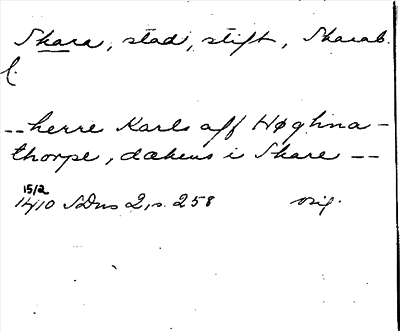 Skara, stad, stift, Skarab.
l.
-- herre Karls aff Høghna-
thorpe, dækens i Skare --
15/2
1410 SDns 2, s. 258 orig.